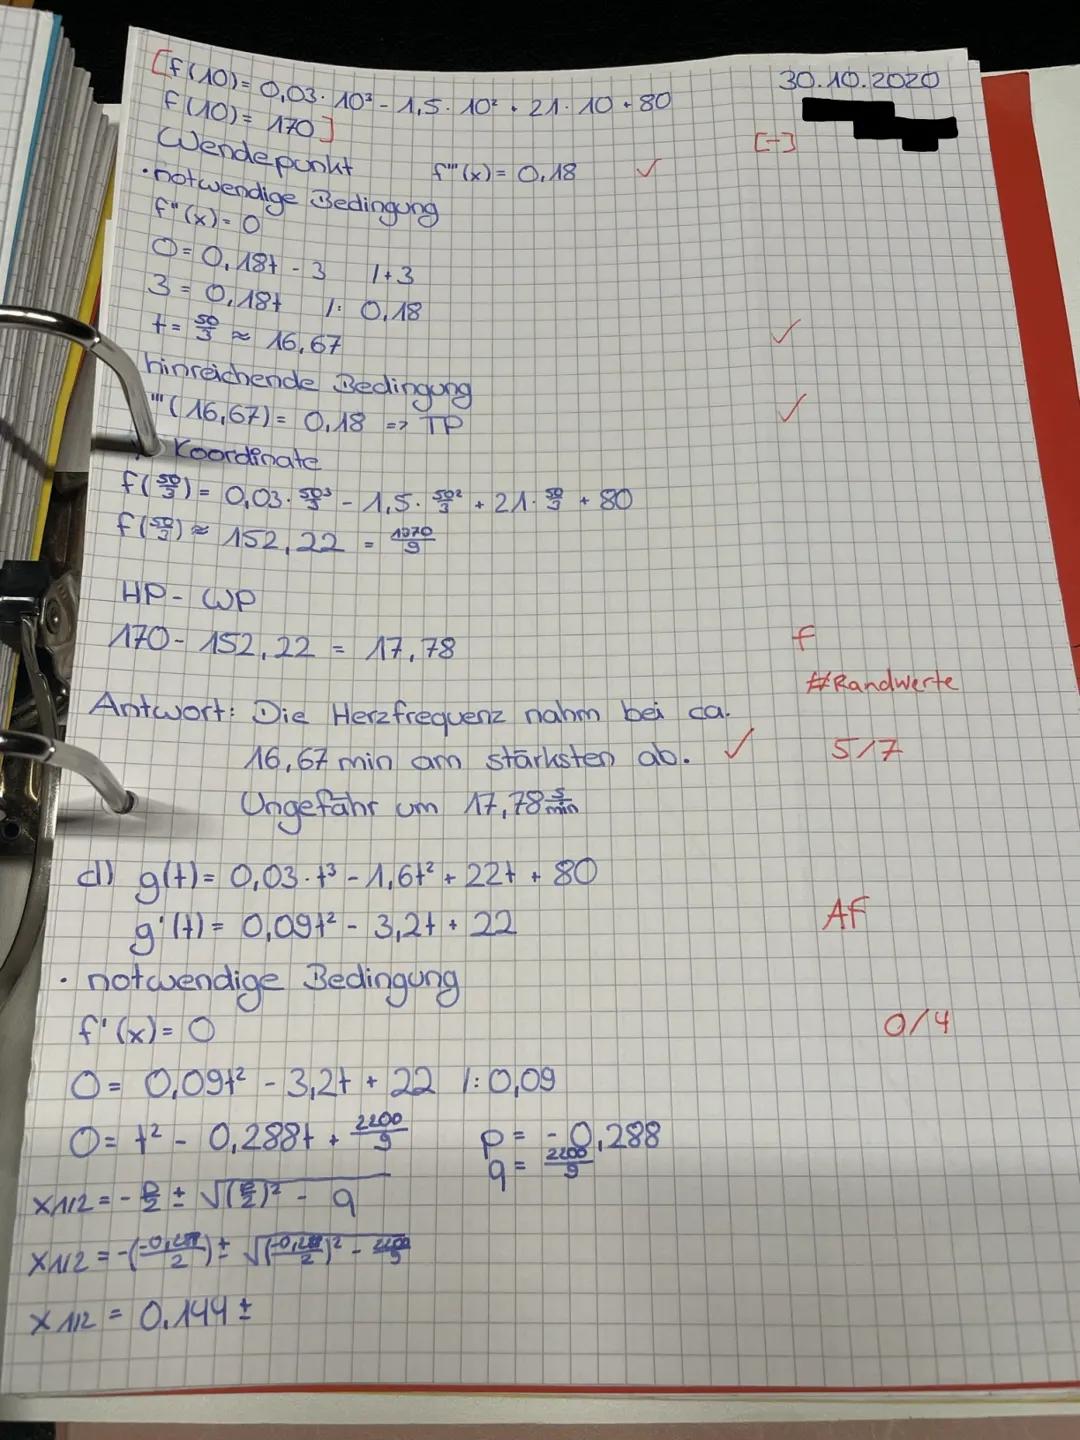 [f(10) = 0,03 · 10³ - 1,5 · 10² + 21 · 10 + 80
30.10.2020
f(10) = 170]
[-]
Wendepunkt f'''(x) = 0,18 ✓
· notwendige Bedingung
f''(x) = 0
0 = 0,18t - 3 |+3
3 = 0,18t |: 0,18
t = 50/3 ≈ 16,67 ✓
hinreichende Bedingung
'''(16,67) = 0,18 => TP ✓
Koordinate
f(50/3) = 0,03 · 50/3³ - 1,5 · 50/3² + 21 · 50/3 + 80
f(50/3) ≈ 152,22 = 1370/9
HP - WP
170 - 152,22 = 17,78 f
#Randwerte
Antwort: Die Herzfrequenz nahm bei ca.
16,67 min am stärksten ab. ✓ 5/7
Ungefähr um 17,78 s/min
d) g(t) = 0,03 · t³ - 1,6t² + 22t + 80
g'(t) = 0,09t² - 3,2t + 22 AF
· notwendige Bedingung
f'(x) = 0 0/4
0 = 0,09t² - 3,2t + 22 |: 0,09
0 = t² - 0,288t + 2200/9 p = -0,288
q = 2200/9
x1/2 = -p/2 ± √(p/2)² - q
x1/2 = -(-0,288/2) ± √(-0,288/2)² - 2200/9
x1/2 = 0,144 ±